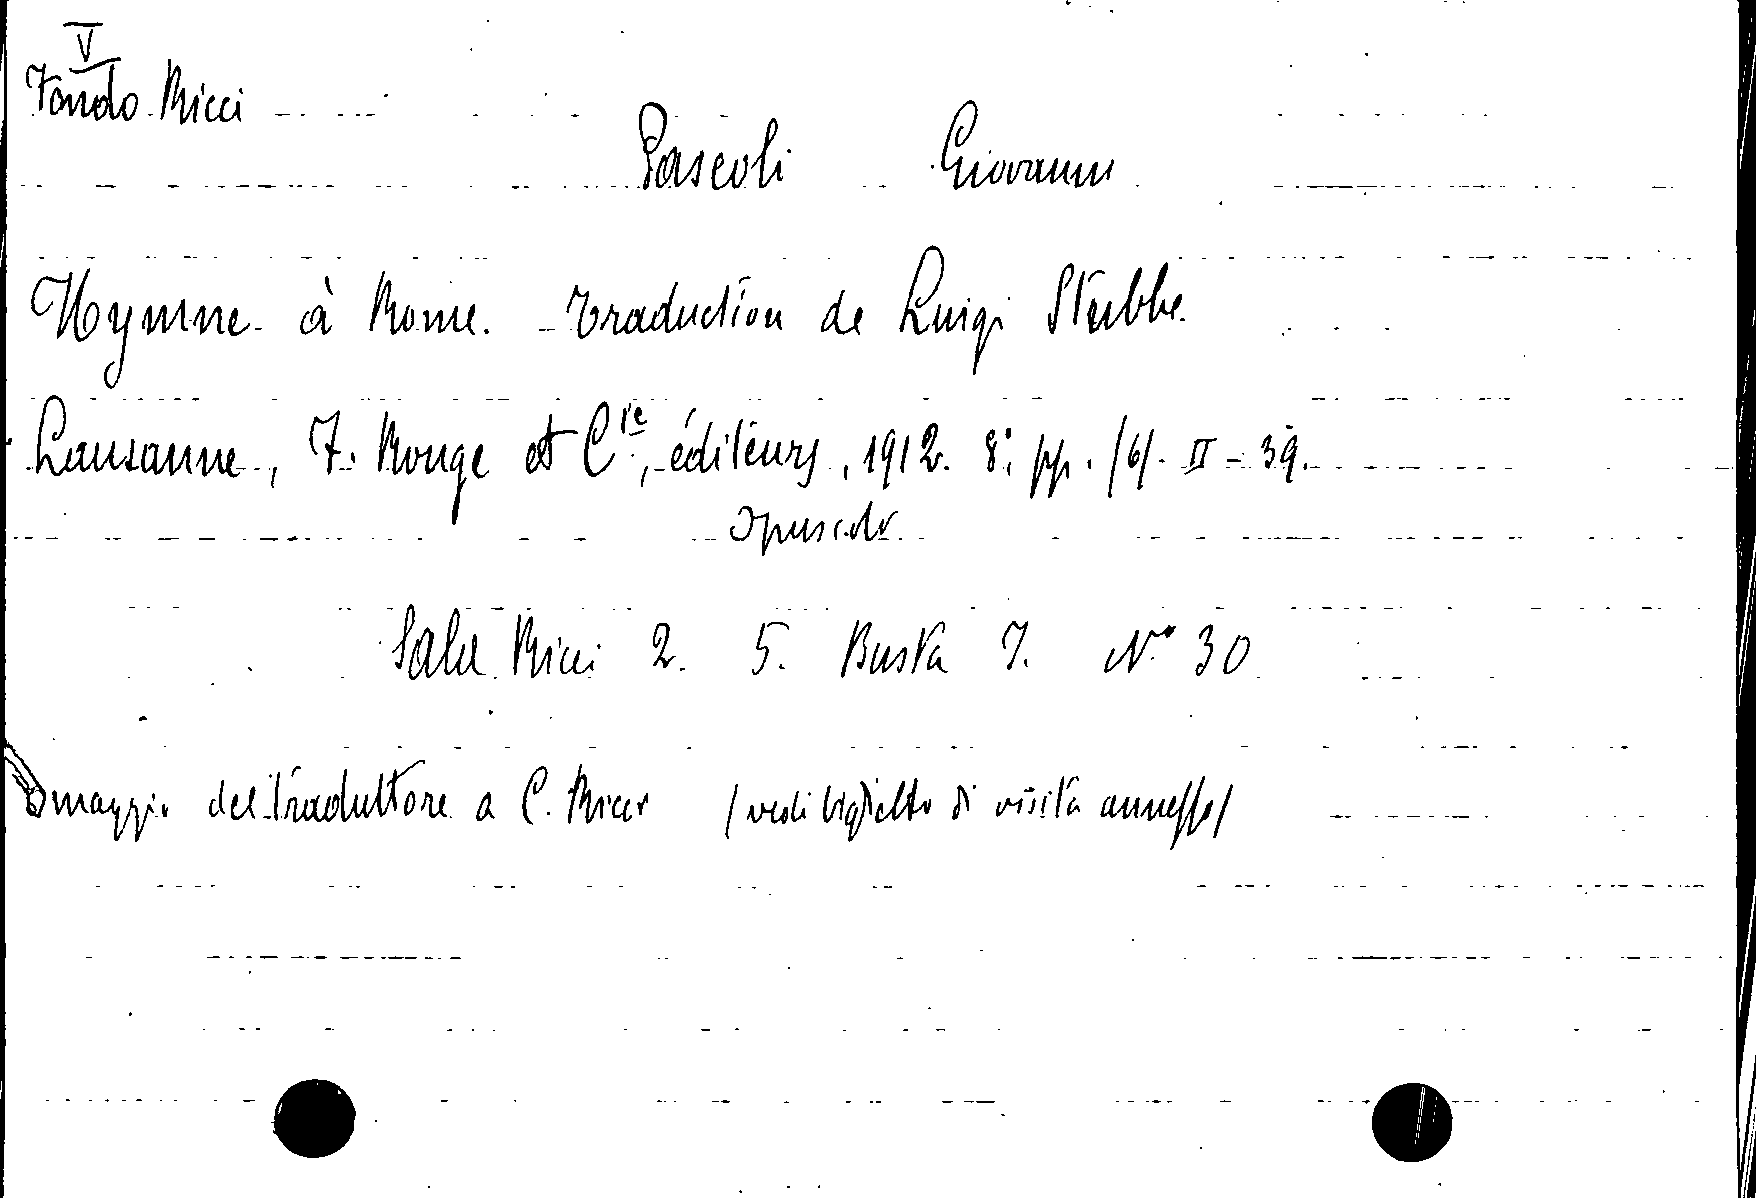 V
Fondo Ricci
Pascoli Giovanni
Hymne à Rome. Traduction de Luigi Stubbe.
Lausanne, F. Rouge et Cie, éditeurs, 1912. 8°. pp. /6/. II - 39.
Opuscolo
Sale Ricci 2. 5. Busta 7. N.° 30
Omaggio del traduttore a C. Ricci /vedi biglietto di visita annesso/